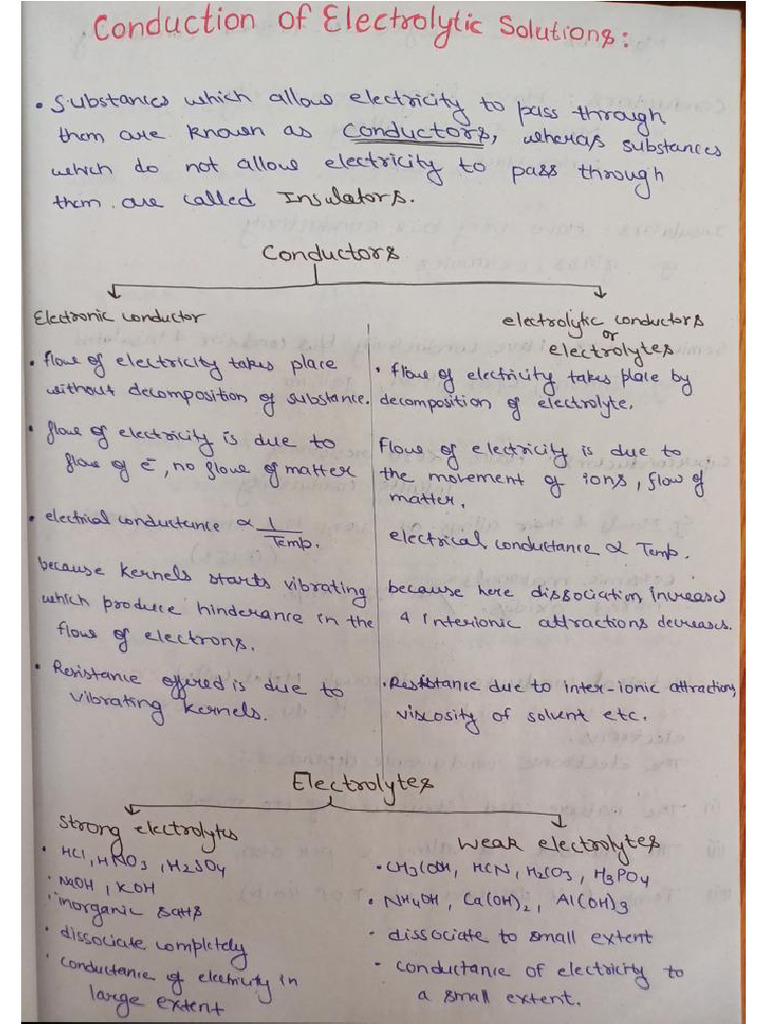 Conduction of Electrolytic Solutions:
• Substances which allow electricity to pass through
them are known as Conductors, wheras substances
which do not allow electricity to pass through
them are called Insulators.
Conductors
Electronic conductor
• flow of electricity takes place
without decomposition of substance.
• flow of electricity is due to
flow of e⁻, no flow of matter
• electrial conductance ∝ 1/Temp.
because kernels starts vibrating
which produce hinderance in the
flow of electrons.
• Resistance offered is due to
vibrating kernels.
electrolytic conductors
or
electrolytes
• flow of electricity takes place by
decomposition of electrolyte.
Flow of electricity is due to
the movement of ions, flow of
matter.
electrical conductance ∝ Temp.
because here dissociation increased
& Interionic attractions decreases.
• Resistance due to inter-ionic attraction,
viscosity of solvent etc.
Electrolytes
Strong electrolytes
• HCl, HNO3, H2SO4
• NaOH, KOH
• inorganic salts
• dissociate completely
• conductance of electricity in
large extent
Weak electrolytes
• CH3COOH, HCN, H2CO3, H3PO4
• NH4OH, Ca(OH)2, Al(OH)3
- dissociate to small extent
- conductance of electricity to
a small extent.